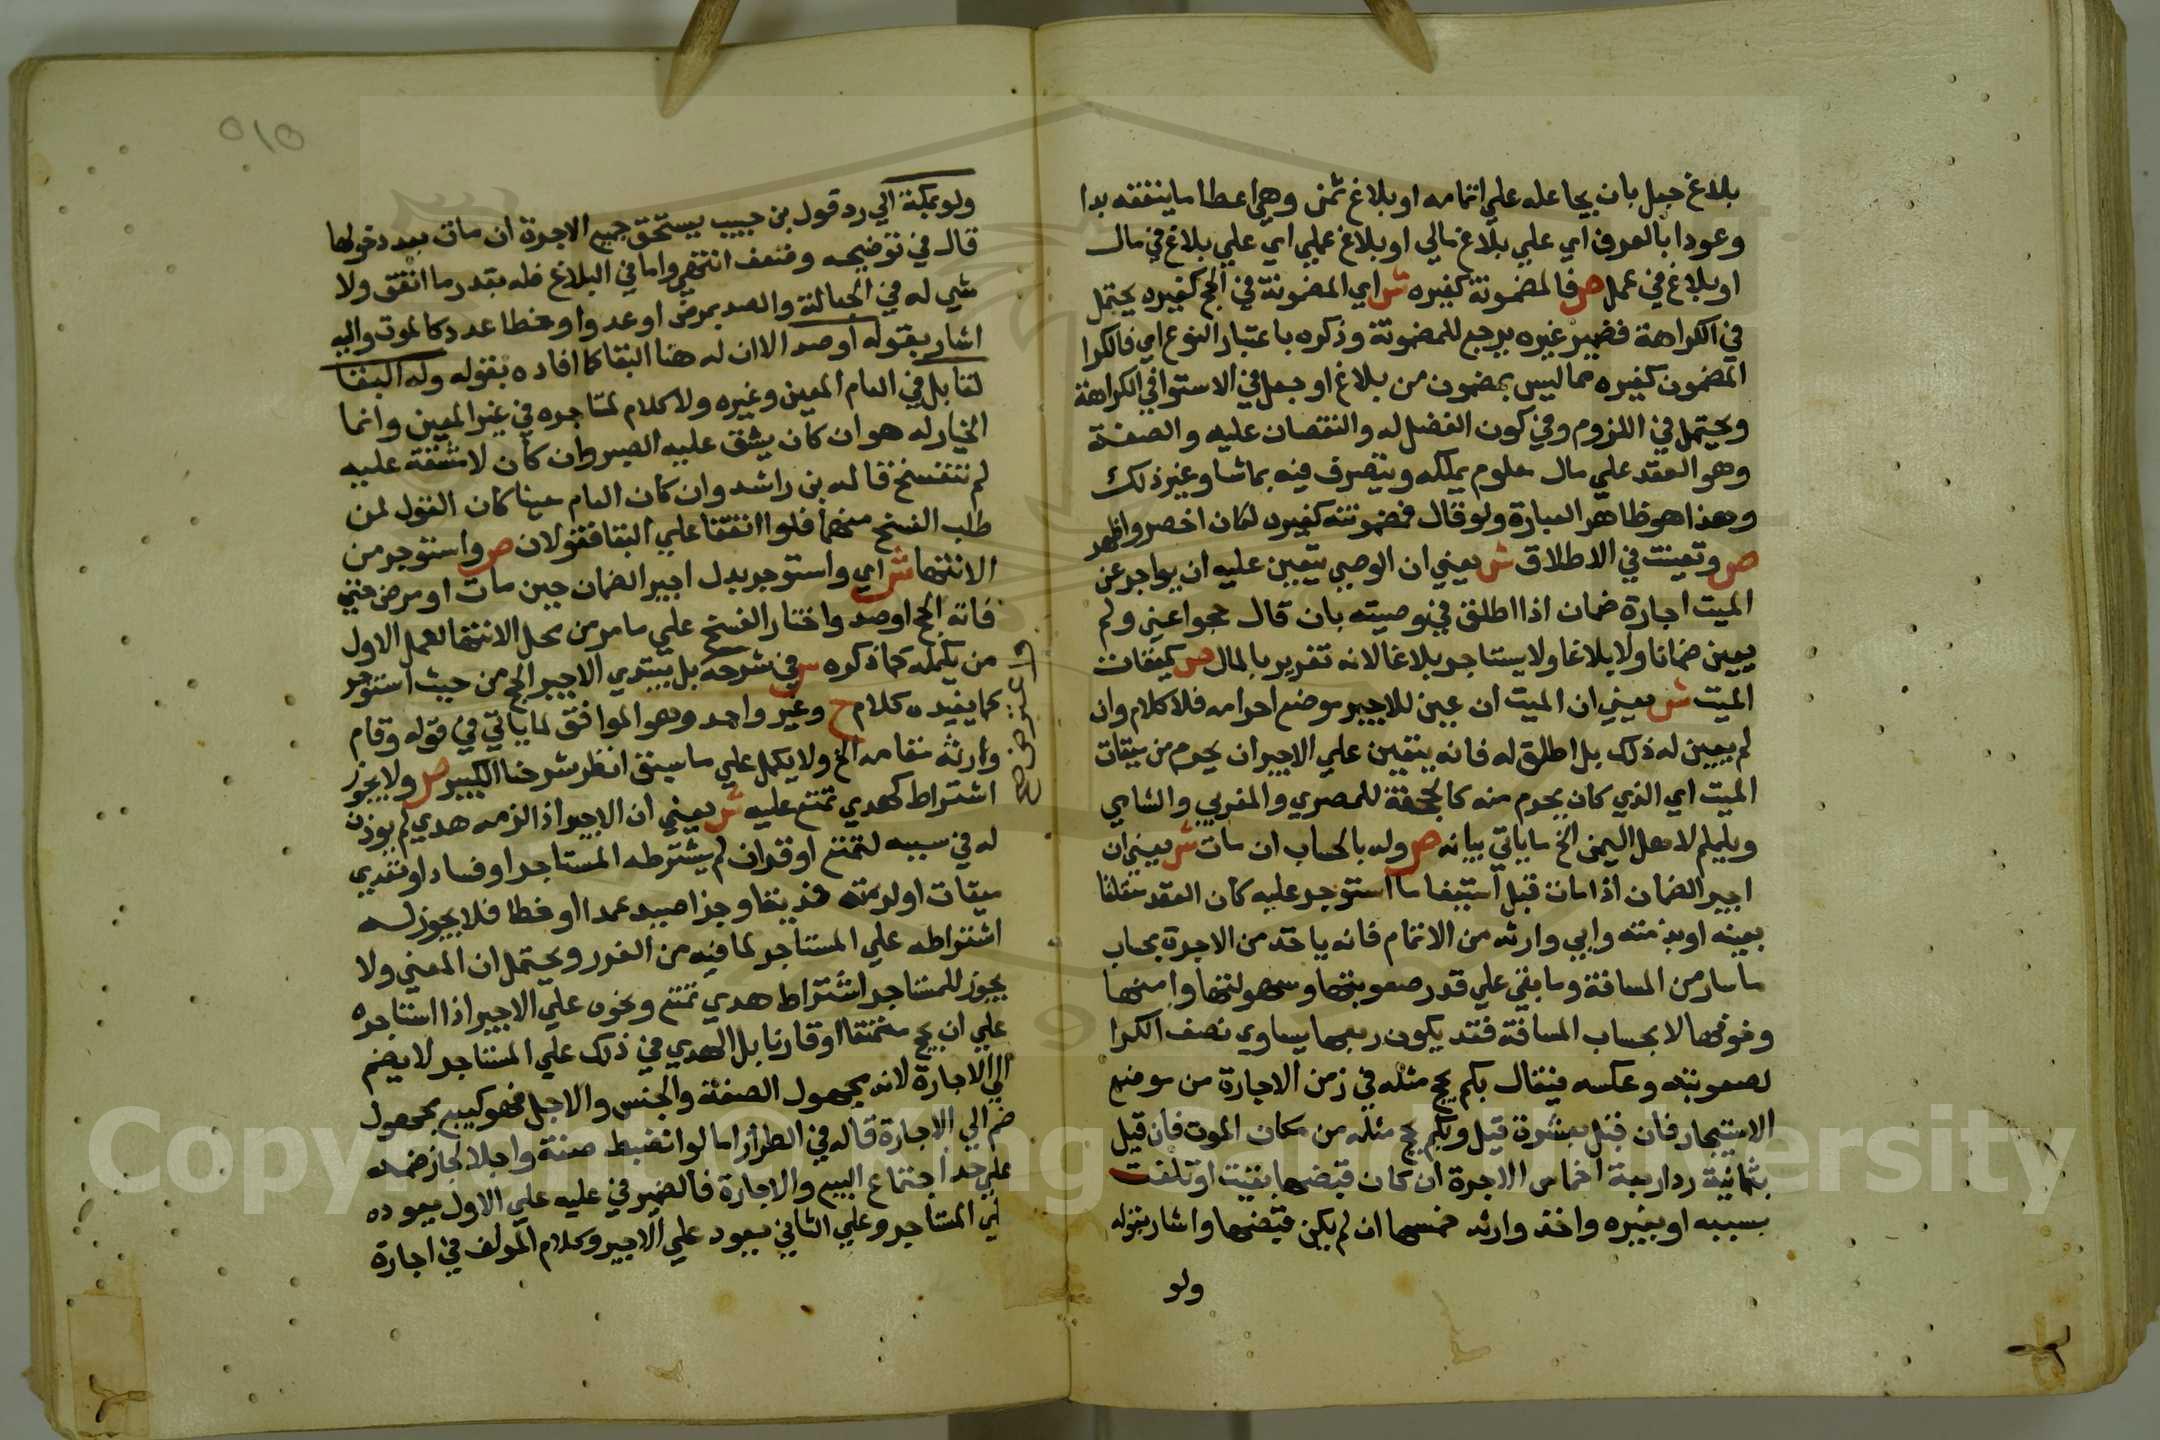 بلاغ جعل بان يجاعله علي اتمامه او بلاغ ثمن وهي اعطا ما ينفقه بدا
وعودا بالعرف اي علي بلاغ مالي او بلاغ عملي اي علي بلاغ في مال
او بلاغ في عمل ص فالمضمونة كغيره ش اي المضمونة في الحج كغيره يحتمل
في الكراهة فضمير غيره يرجع للمضمونة وذكره باعتبار النوع اي فالكرا
المضمون كغيره مما ليس بمضمون من بلاغ او جعل في الاستوا في الكراهة
ويحتمل في اللزوم وفي كون الفضل له والنقصان عليه والصفة
وهو العقد علي مال معلوم يملكه ويتصرف فيه بما شا وغير ذلك
وهذا هو ظاهر العبارة ولو قال فمضمونته كغيره لكان اخصر واظهر
ص وتعينت في الاطلاق ش يعني ان الوصي يتعين عليه ان يواجر عن
الميت اجارة ضمان اذا اطلق في وصيته بان قال حجوا عني ولم
يعين ضمانا ولا بلاغا ولا يستاجر بلاغا لانه تغرير بالمال ص كميقات
الميت ش يعني ان الميت ان عين للاجير موضع احرامه فلا كلام وان
لم يعين له ذلك بل اطلق له فانه يتعين علي الاجير ان يحرم من ميقات
الميت اي الذي كان يحرم منه كالجحفة للمصري والمغربي والشامي
ويلملم لاهل اليمن الخ ما ياتي بيانه ص وله بالحساب ان مات ش يعني ان
اجير الضمان اذا مات قبل استيفا ما استوجر عليه كان العقد متعلقا
بعينه او بذمته وابي وارثه من الاتمام فانه ياخذ من الاجرة بحساب
ما سار من المسافة وما بقي علي قدر صعوبتها وسهولتها وامنها
وخوفها لا بحساب المسافة فقد يكون ربعها يساوي نصف الكرا
لصعوبته وعكسه فيقال بكم يحج مثله في زمن الاجارة من موضع
الاستيجار فان قيل بعشرة قيل وبكم يحج مثله من مكان الموت فان قيل
بثمانية رد اربعة اخماس الاجرة ان كان قبضها بقيت او تلفت
بسببه او بغيره واخذ وارثه خمسها ان لم يكن قبضها واشار بقوله
ولو
٥١٥
ولو بمكة الي رد قول بن حبيب يستحق جميع الاجرة ان مات بعد دخولها
قال في توضيحه وضعف انتهي واما في البلاغ فله بقدر ما انفق ولا
شي له في الجعالة والصد بمرض او عدو او خطا عدد كالموت واليه
اشار بقوله او صد الا ان له هنا البقا كما افاده بقوله وله البقا
لقابل في العام المعين وغيره ولا كلام لمتاجره في غير المعين وانما
الخيار له هو ان كان يشق عليه الصبر وان كان لا مشقة عليه
لم تنفسخ قاله بن راشد وان كان العام معينا كان القول لمن
طلب الفسخ منهما فلو اتفقا علي البقا فقولان ص واستوجر من
الانتها ش اي واستوجر بدل اجير الضمان حين مات او مرض حتي
فاته الحج او صد واختار الفسخ علي ما مر من محل الانتها لعمل الاول
من يكمله كما ذكره س في شرحه بل يبتدي الاجير الحج من حيث استوجر
كما يفيده كلام ح وغير واحد وهو الموافق لما ياتي في قوله وقام
وارثه مقامه الخ ولا يكمل علي ما سبق انظر شرحنا الكبير ص ولا يجوز
اشتراط كهدي تمتع عليه ش يعني ان الاجير اذا لزمه هدي لم يوذن
له في سببه لتمتع او قران لم يشترطه المستاجر او فساد او تعدي
ميقات او لزمته فدية وجزا صيد عمدا او خطا فلا يجوز له
اشتراطه علي المستاجر لما فيه من الغرر ويحتمل ان المعني ولا
يجوز للمستاجر اشتراط هدي تمتع ونحوه علي الاجير اذا استاجره
علي ان يحج متمتعا او قارنا بل الهدي في ذلك علي المستاجر لا يضم
الي الاجارة لانه مجهول الصفة والجنس والاجل فهو كبيع مجهول
ضم الي الاجارة قاله في الطراز اما لو انضبط صفة واجلا لجاز ضمه
علي حد اجتماع البيع والاجارة فالضمير في عليه علي الاول يعوده
لي المستاجر وعلي الثاني يعود علي الاجير وكلام المولف في اجارة
Copyright © King Saud University